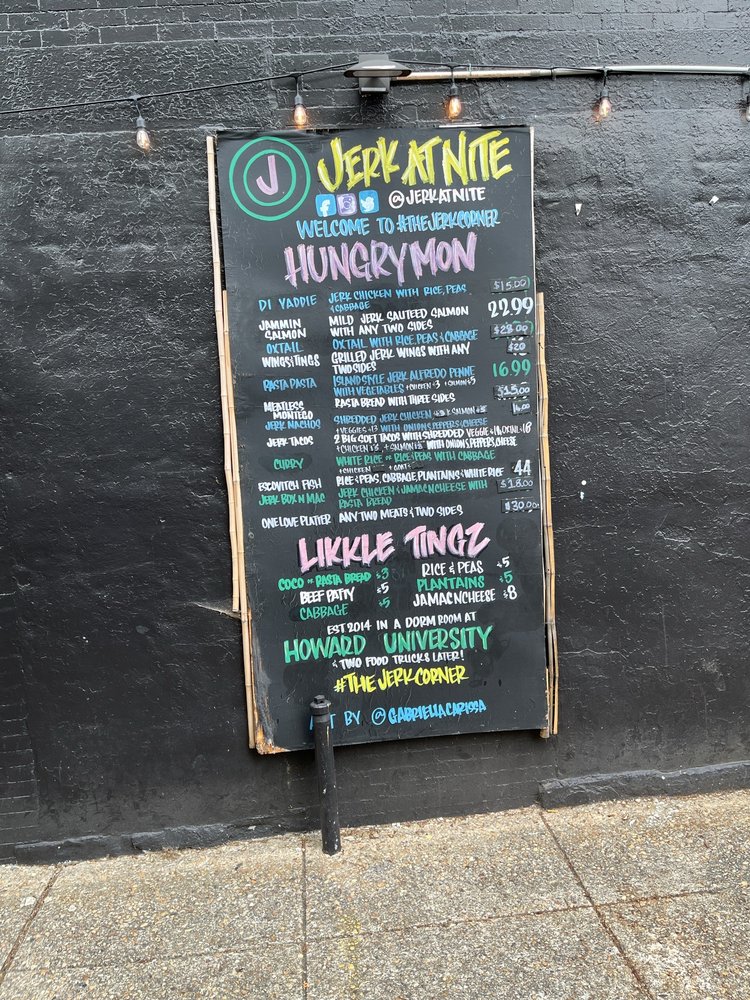 J JERK AT NITE
@JERKATNITE
WELCOME TO #THEJERKCORNER
HUNGRYMON
DI YADDIE JERK CHICKEN WITH RICE, PEAS $15.00
& CABBAGE
JAMMIN MILD JERK SAUTEED SALMON 22.99
SALMON WITH ANY TWO SIDES
OXTAIL OXTAIL WITH RICE, PEAS & CABBAGE $28.00
WINGS & TINGS GRILLED JERK WINGS WITH ANY $20
TWO SIDES
RASTA PASTA ISLAND STYLE JERK ALFREDO PENNE 16.99
WITH VEGETABLES +CHICKEN $3 +SALMON $5
MEATLESS RASTA BREAD WITH THREE SIDES $15.00
MONTEGO
JERK NACHOS SHREDDED JERK CHICKEN SALMON
+VEGGIES 13 WITH ONIONS, PEPPERS & CHEESE
JERK TACOS 2 BIG SOFT TACOS WITH SHREDDED VEGGIE OXTAIL 18
+CHICKEN +SALMON WITH ONIONS, PEPPERS, CHEESE
CURRY WHITE RICE OR RICE & PEAS WITH CABBAGE
+CHICKEN +GOAT
ESCOVITCH FISH RICE & PEAS, CABBAGE, PLANTAINS & WHITE RICE 44
JERK BOX N MAC JERK CHICKEN & JAMAC'N CHEESE WITH $18.00
RASTA BREAD
ONE LOVE PLATTER ANY TWO MEATS & TWO SIDES $30.00
LIKKLE TINGZ
COCO OR RASTA BREAD $3 RICE & PEAS $5
BEEF PATTY $5 PLANTAINS $5
CABBAGE $5 JAMAC'N CHEESE $8
EST 2014 IN A DORM ROOM AT
HOWARD UNIVERSITY
& TWO FOOD TRUCKS LATER!
#THEJERKCORNER
ART BY @GABRIELLACARISSA